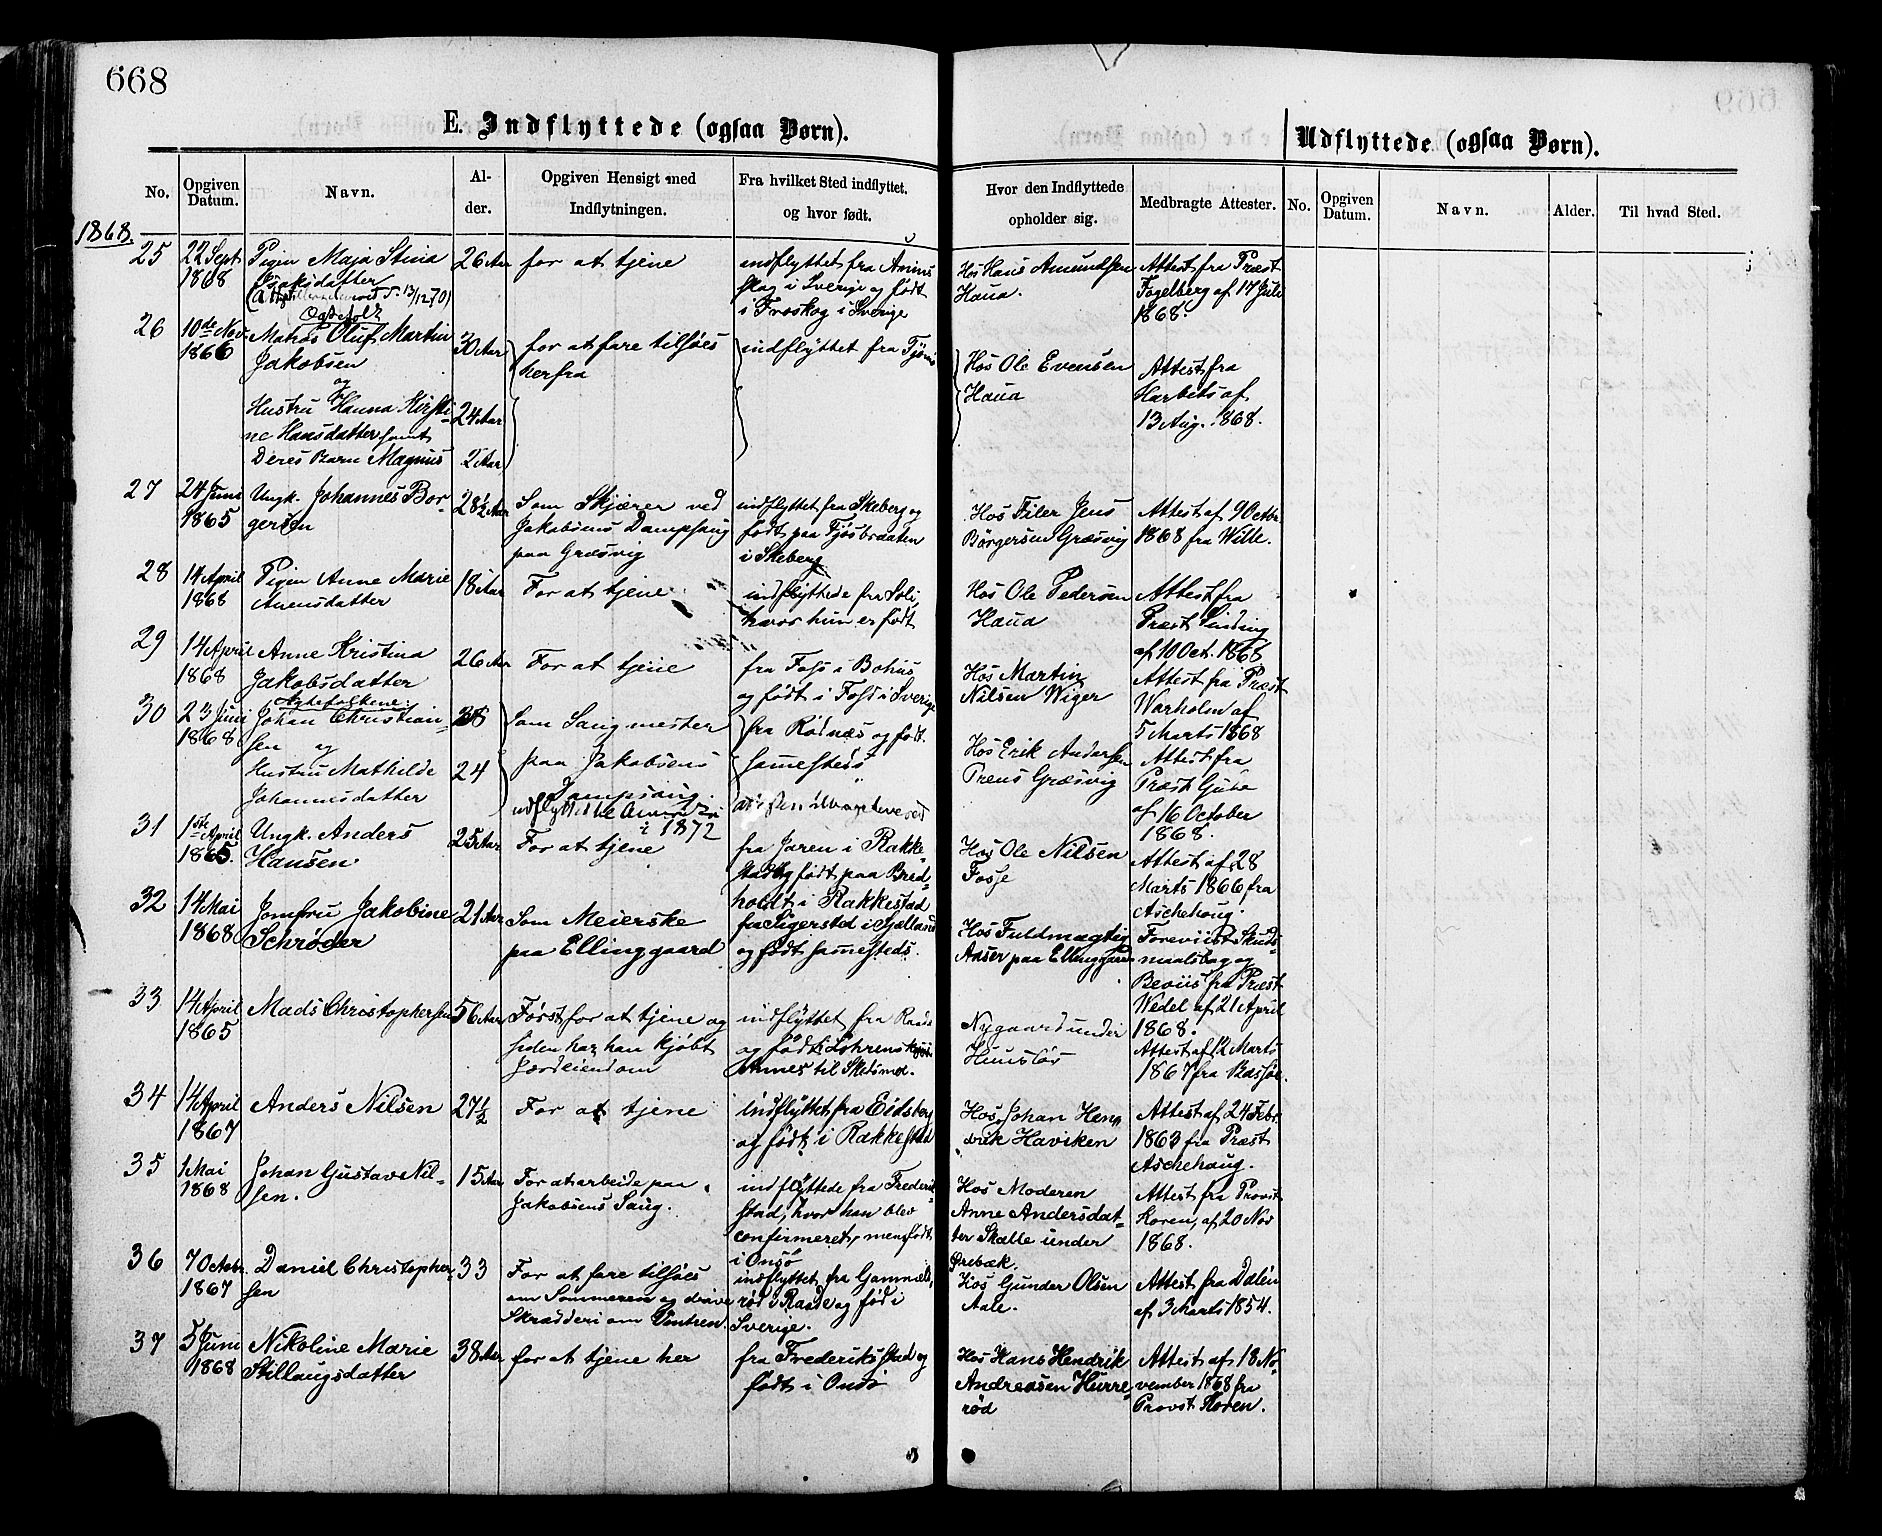 668
E. Indflyttede (ogsaa Børn).
Udflyttede (ogsaa Børn).
No.
Opgiven Datum.
Navn.
Alder.
Opgiven Hensigt med Indflytningen.
Fra hvilket Sted indflyttet. og hvor født.
Hvor den Indflyttede opholder sig.
Medbragte Attester.
No.
Opgiven Datum.
Navn.
Alder.
Til hvad Sted.
1868.
25
22 Sept 1868
Pigen Maja Stina
Isaksdatter
26 Aar
for at tjene
indflyttet fra Animskog i Sverige og født
i Froskog i Sverige
Hos Hans Amundsen
Haua.
Attest fra Præst
Fogelberg af 17 Juli
1868.
26
10de Nov. 1866
Ogtefolk
Matros Oluf Martin
Jakobsen
og
Hustru Hanna Kirstine Hansdatter samt
Deres Barn Magnus
30 Aar
24 Aar
2 Aar
for at fare tilsøes
herfra
indflyttet fra
Hos Ole Evensen
Haua
Attest fra
af
13 Aug. 1868.
27
24 Juni 1865
Ungk. Johannes Borgersen
28½ Aar
Som Skjærer ved
Jakobsens Dampsaug
paa Græsvig
indflyttet fra Skeberg og
født paa Tjøsbraaten
i Skeberg
Hos Filer Jens
Børgersen Græsvig
Attest af 9 Octbr.
1868 fra Wille.
28
14 April 1868
Pigen Anne Marie
Anensdatter
18 Aar
For at tjene
indflyttede fra Soli,
hvor hun er født
Hos Ole Pedersen
Haua
Attest fra
Præst Sinding
af 10 Oct. 1868
29
14 April 1868
Anne Kristina
Jakobsdatter
26 Aar
For at tjene
fra Foss i Bohus
og født i Foss i Sverige
Hos Martin
Nilsen Wiger
Attest fra Præst
Warholm af
5 Marts 1868
30
23 Juni 1868
Ægtefolkene
Johan Christiansen og
Hustru Mathilde
Johannesdatter
24
Som Saugmester
paa Jakobsens
Dampsaug.
udflyttet til Amerika
i 1872
fra Rødnæs og født
sammesteds
Hos Erik Andersen
Præns Græsvig
Attest fra
Præst
af 16 October
1868.
31
1ste April 1865.
Ungk. Anders
Hansen
25 Aar
For at tjene
fra Jaren i Rakkestad og født paa Bredholdt i Rakkestad
Hos Ole Nilsen
Fosse
Attest af 28
Marts 1866 fra
Aschehoug.
32
14 Mai 1868
Jomfru Jakobine
Schrøder
21 Aar
Som Meierske
paa Ellinggaard
fra Sigersted i Sjælland
og født samesteds.
Hos Fuldmægtig
Aaser paa Ellinggaard
Foreviist Skudsmaalsbog og
Beviis fra Præst
Wedel af 21 April
1868.
33
14 April 1865
Mads Christophersen
56 Aar
Først for at tjene og
siden har han kjøbt
Jordeiendom
indflyttet fra Raade
og født i
Annex til Skedsmo.
Nygaard under
Hunslør
Attest af 12 Marts
1867 fra Bassøe.
34
14 April 1867
Anders Nilsen
27½
For at tjene
indflyttet fra Eidsberg
og født i Rakkestad
Hos Johan Hendrik Haviken
Attest af 24 Febr.
1863 fra Præst
Aschehoug.
35
1 Mai 1868
Johan Gustav Nilsen.
15 Aar
For at arbeide paa
Jakobsens Saug.
indflyttede fra Frederikstad, hvor han blev
confirmeret, men født
i Onsø
Hos Moderen
Anne Andersdatter Skalle under
Ørebæk.
Attest fra Provst
Koren, af 20 Nov
1868.
36
7 Octbr. 1867
Daniel Christophersen
33
For at fare tilsøes
om Sommeren og drive
Skrædderi om Vintren.
indflyttet fra Gammelsrød i Raade og fød i
Sverige.
Hos Gunder Olsen
Aale.
Attest fra Dalen
af 3 Marts 1854.
37
5 Juni 1868
Nikoline Marie
Stillaugsdatter
38 Aar
for at tjene her
fra Frederiksstad og
født i Onsø
Hos Hans Hendrik
Andreasen Hurrerød
Attest af 18 November 1868 fra
Provst Koren.